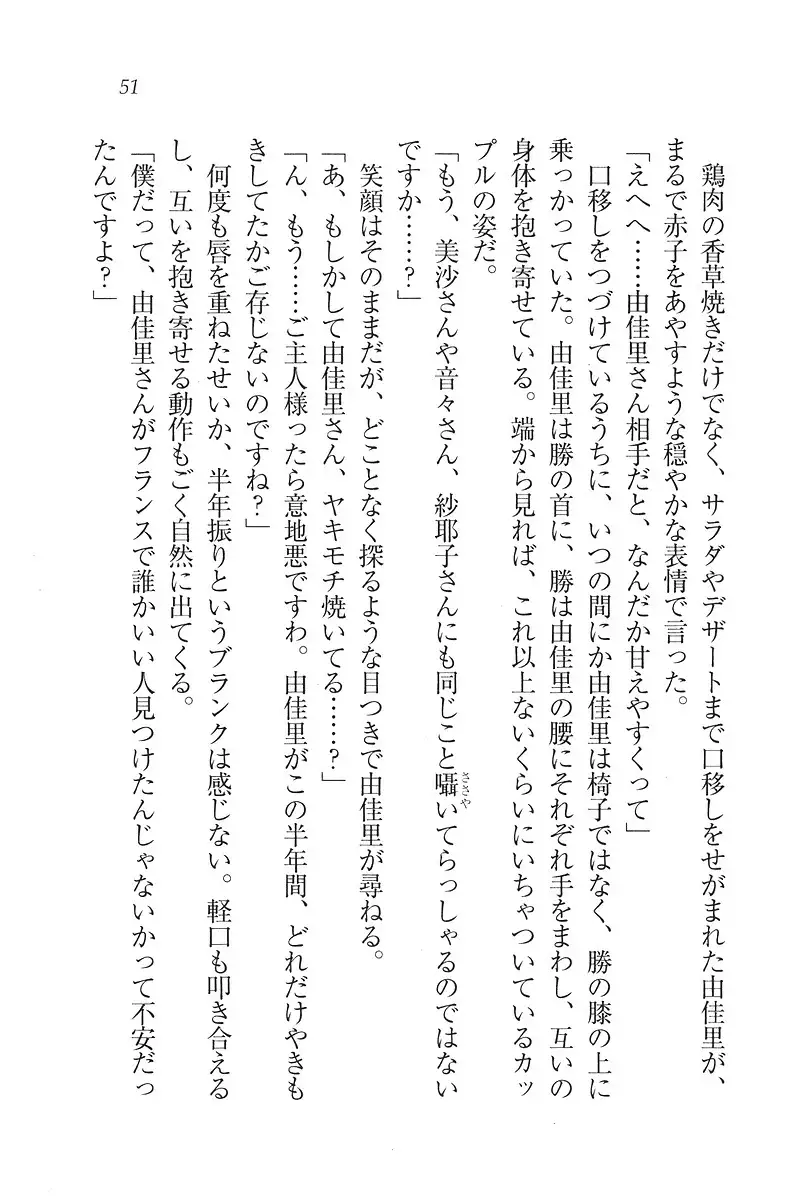 51
鶏肉の香草焼きだけでなく、サラダやデザートまで口移しをせがまれた由佳里が、
まるで赤子をあやすような穏やかな表情で言った。
「えへへ……由佳里さん相手だと、なんだか甘えやすくって」
口移しをつづけているうちに、いつの間にか由佳里は椅子ではなく、勝の膝の上に
乗っかっていた。由佳里は勝の首に、勝は由佳里の腰にそれぞれ手をまわし、互いの
身体を抱き寄せている。端から見れば、これ以上ないくらいにいちゃついているカッ
プルの姿だ。
「もう、美沙さんや音々さん、紗耶子さんにも同じこと囁いてらっしゃるのではない
ささや
ですか……？」
笑顔はそのままだが、どことなく探るような目つきで由佳里が尋ねる。
「あ、もしかして由佳里さん、ヤキモチ焼いてる……？」
「ん、もう……ご主人様ったら意地悪ですわ。由佳里がこの半年間、どれだけやきも
きしてたかご存じないのですね？」
何度も唇を重ねたせいか、半年振りというブランクは感じない。軽口も叩き合える
し、互いを抱き寄せる動作もごく自然に出てくる。
「僕だって、由佳里さんがフランスで誰かいい人見つけたんじゃないかって不安だっ
たんですよ？」